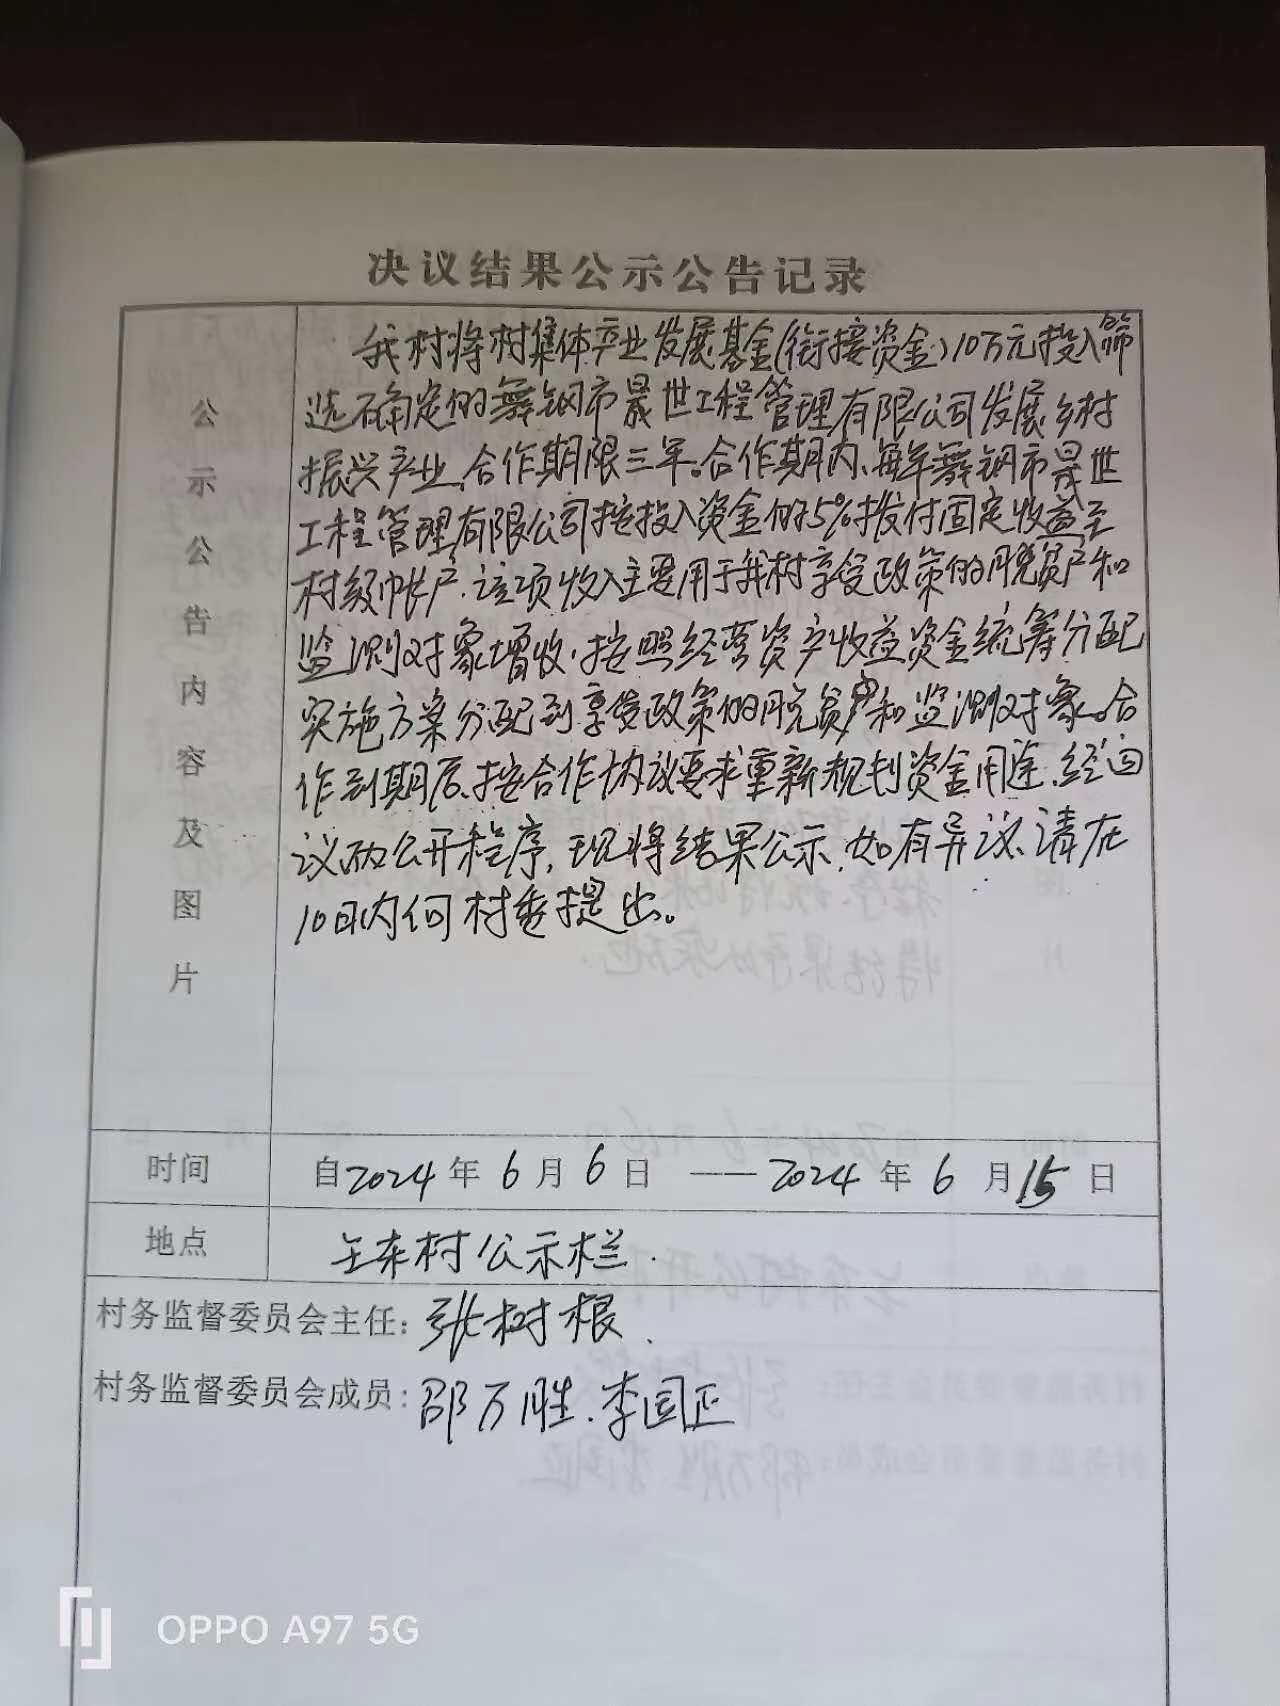 决议结果公示公告记录
公示公告内容及图片
我村将村集体产业发展基金(衔接资金)10万元投入筛
选确定的舞钢市晟世工程管理有限公司发展乡村
振兴产业,合作期限三年。合作期内、每年舞钢市晟世
工程管理有限公司按投入资金的5%拨付固定收益至
村级帐户.该项收入主要用于我村享受政策的脱贫户和
监测对象增收.按照经营资产收益资金统筹分配
实施方案分配到享受政策的脱贫户和监测对象。合
作到期后、按合作协议要求重新规划资金用途、经四
议两公开程序,现将结果公示.如有异议、请在
10日内向村委提出。
时间 自2024年6月6日 —— 2024年6月15日
地点 王东村公示栏.
村务监督委员会主任:张树根.
村务监督委员会成员:邵万胜.李国正
OPPO A97 5G